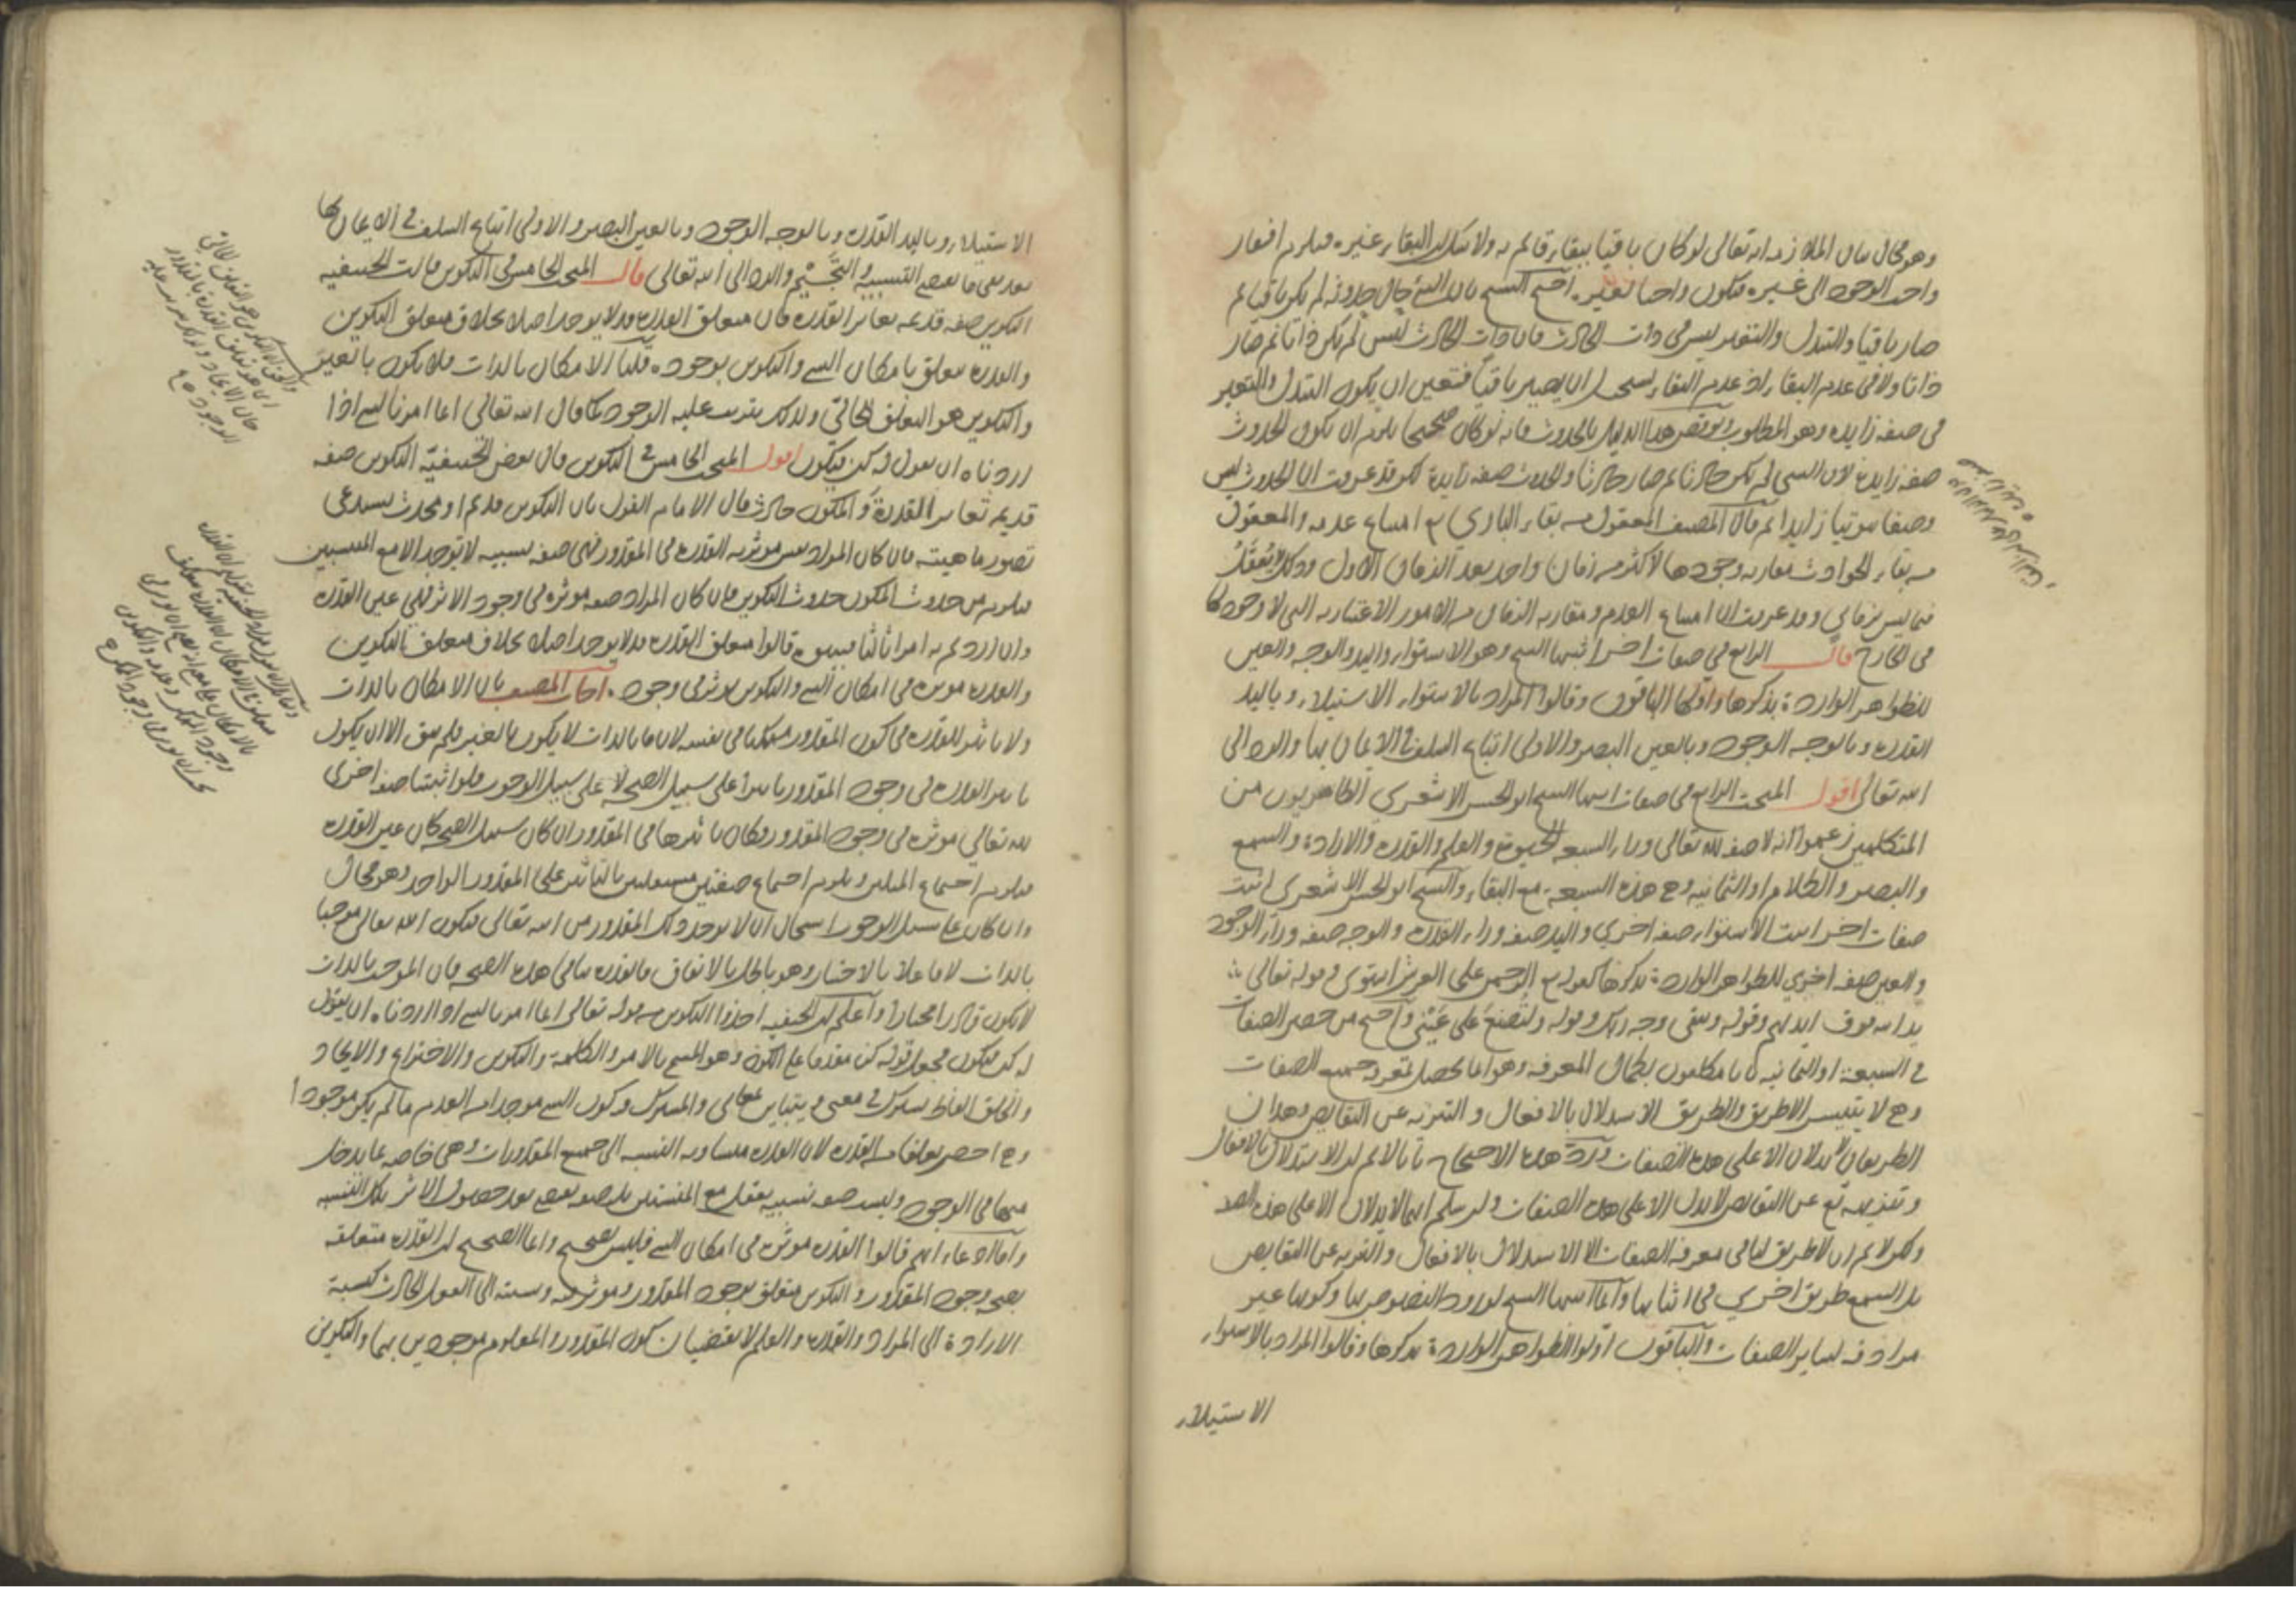 وهو محال بيان الملازمة انه تعالى لو كان باقيا ببقاء قائم به ولا شك ان البقاء غيره فيلزم افتقار
واجب الوجود الى غيره فيكون واجبا لغيره احتج الشيخ بان الشئ حال حدوثه لم يكن باقيا ثم
صار باقيا والتبدل والتغير ليس في ذات الحادث فان ذات الحادث ليس لم يكن ذاتا ثم صار
ذاتا ولا في عدم البقاء اذ عدم البقاء يستحيل ان يصير باقيا فتعين ان يكون التبدل والتغير
في صفة زايدة وهو المطلوب ونوقض هذا الدليل بالحدوث فانه لو كان صحيحا يلزم ان يكون الحدوث
صفة زايدة لان الشئ لم يكن حادثا ثم صار حادثا والحدوث صفة زايدة لكن قد عرفت ان الحدوث ليس
وصفا ثبوتيا زايدا ثم قال المصنف المعقول من بقاء الباري تع امتناع عدمه والمعقول
من بقاء الحوادث مقارنة وجودها لاكثر من زمان واحد بعد الزمان الاول وذلك لا يعقل
فيما ليس بزماني وقد عرفت ان امتناع العدم ومقارنة الزمان من الامور الاعتبارية التي لا وجود لها
في الخارج قال الرابع في صفات اخر اثبتها الشيخ وهو الاستواء واليد والوجه والعين
للظواهر الواردة بذكرها واولها الباقون وقالوا المراد بالاستواء الاستيلاء وباليد
القدرة وبالوجه الوجود وبالعين البصر والاولى اتباع السلف في الايمان بها والرد الى
الله تعالى اقول المبحث الرابع في صفات اثبتها الشيخ ابو الحسن الاشعري الظاهريون من
المتكلمين زعموا انه لا صفة لله تعالى وراء السبعة الحيوة والعلم والقدرة والارادة والسمع
والبصر والكلام او الثمانية وهي هذه السبعة مع البقاء والشيخ ابو الحسن الاشعري اثبت
صفات اخر اثبت الاستواء صفة اخرى واليد صفة وراء القدرة والوجه صفة وراء الوجود
والعين صفة اخرى للظواهر الواردة بذكرها كقوله تع الرحمن على العرش استوى وقوله تعالى
يد الله فوق ايديهم وقوله ويبقى وجه ربك وقوله ولتصنع على عيني واحتج من حصر الصفات
في السبعة او الثمانية بانا مكلفون بكمال المعرفة وهو انما يحصل بمعرفة جميع الصفات
وهي لا يتيسر الا بطريق والطريق الاستدلال بالافعال والتنزيه عن النقايص وهذان
الطريقان لا يدلان الا على هذه الصفات ورد هذا الاحتجاج بانا لا نم ان الاستدلال بالافعال
وتنزيهه تع عن النقايص لا يدل الا على هذه الصفات ولئن سلم انهما لا يدلان الا على هذه الصفات
ولكن لا نم ان لا طريق لنا في معرفة الصفات الا الاستدلال بالافعال والتنزيه عن النقايص
بل السمع طريق اخرى في اثباتها وانما اثبتها الشيخ لورود النصوص بها وكونها غير
مرادفة لساير الصفات والباقون اولوا الظواهر الواردة بذكرها وقالوا المراد بالاستواء
الاستيلاء
الاستيلاء وباليد القدرة وبالوجه الوجود وبالعين البصر والاولى اتباع السلف في الايمان بها
بعد نفي ما يقتضي التشبيه والتجسيم والرد الى الله تعالى قال المبحث الخامس في التكوين قالت الحنفية
التكوين صفة قديمة تغاير القدرة فان متعلق القدرة قد لا يوجد اصلا بخلاف متعلق التكوين
والقدرة متعلق بامكان الشئ والتكوين بوجوده قلنا الامكان بالذات فلا يكون بالغير
والتكوين هو التعلق الحالي ولذلك يترتب عليه الوجود كما قال الله تعالى انما امرنا لشئ اذا
اردناه ان نقول له كن فيكون اقول المبحث الخامس في التكوين قال بعض الحنفية التكوين صفة
قديمة تغاير القدرة والمكون حادث قال الامام القول بان التكوين قديم او محدث يستدعي
تصور ماهيته فان كان المراد نفس مؤثرية القدرة في المقدور فهي صفة نسبية لا توجد الا مع المنتسبين
فيلزم من حدوث المكون حدوث التكوين وان كان المراد صفة مؤثرة في وجود الاثر فهي عين القدرة
وان اردتم به امرا ثالثا فبينوه قالوا متعلق القدرة قد لا يوجد اصلا بخلاف متعلق التكوين
والقدرة مؤثرة في امكان الشئ والتكوين يؤثر في وجوده اجاب المصنف بان الامكان بالذات
ولا تاثير للقدرة في كون المقدور ممكنا في نفسه لان ما بالذات لا يكون بالغير فلم يبق الا ان يكون
تاثير القدرة في وجود المقدور تاثيرا على سبيل الصحة لا على سبيل الوجوب فلو اثبتنا صفة اخرى
لله تعالى مؤثرة في وجود المقدور وكان تاثيرها في المقدور ان كان سبيل الصحة كان عين القدرة
فيلزم اجتماع المثلين ويلزم اجتماع صفتين مستقلتين بالتاثير على المقدور الواحد وهو محال
وان كان على سبيل الوجوب استحال ان لا يوجد ذلك المقدور من الله تعالى فيكون الله تعالى موجبا
بالذات لا فاعلا بالاختيار وهو باطل بالاتفاق فالقدرة ينافي هذه الصحة فان الموجب بالذات
لا يكون قادرا مختارا واعلم ان الحنفية اخذوا التكوين من قوله تعالى انما امرنا لشئ اذا اردناه ان نقول
له كن فيكون فجعل قوله كن مقدما على الكون وهو المسمى بالامر والكلمة والتكوين والاختراع والايجاد
والخلق الفاظ تشترك في معنى ويتباين بمعاني والمشترك فيه كون الشئ موجدا من العدم ما لم يكن موجودا
وهي اخص تعلقا من القدرة لان القدرة متساوية النسبة الى جميع المقدورات وهي خاصة بما يدخل
منها في الوجود وليست صفة نسبية يعقل مع المنتسبين بل صفة تقتضي بعد حصول الاثر تلك النسبة
واما ادعاء انهم قالوا القدرة مؤثرة في امكان الشئ فليس بصحيح وانما الصحيح ان القدرة متعلقة
بصحة وجود المقدور والتكوين متعلق بوجود المقدور ومؤثر فيه ونسبته الى الفعل الحادث كنسبة
الارادة الى المراد والقدرة والعلم لا يقتضيان كون المقدور والمعلوم موجودين بهما والتكوين